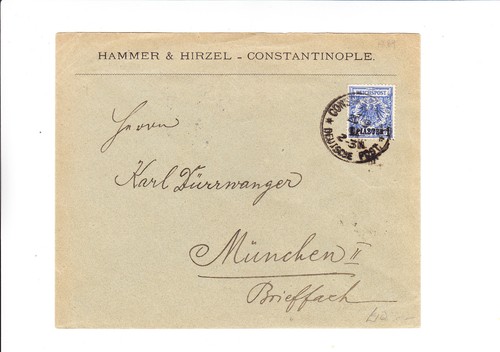 HAMMER & HIRZEL - CONSTANTINOPLE.
REICHSPOST
1 PIASTER 1
DEUTSCHE POST
2-3N
Herrn
Karl Dürrwanger
München II
Brieffach